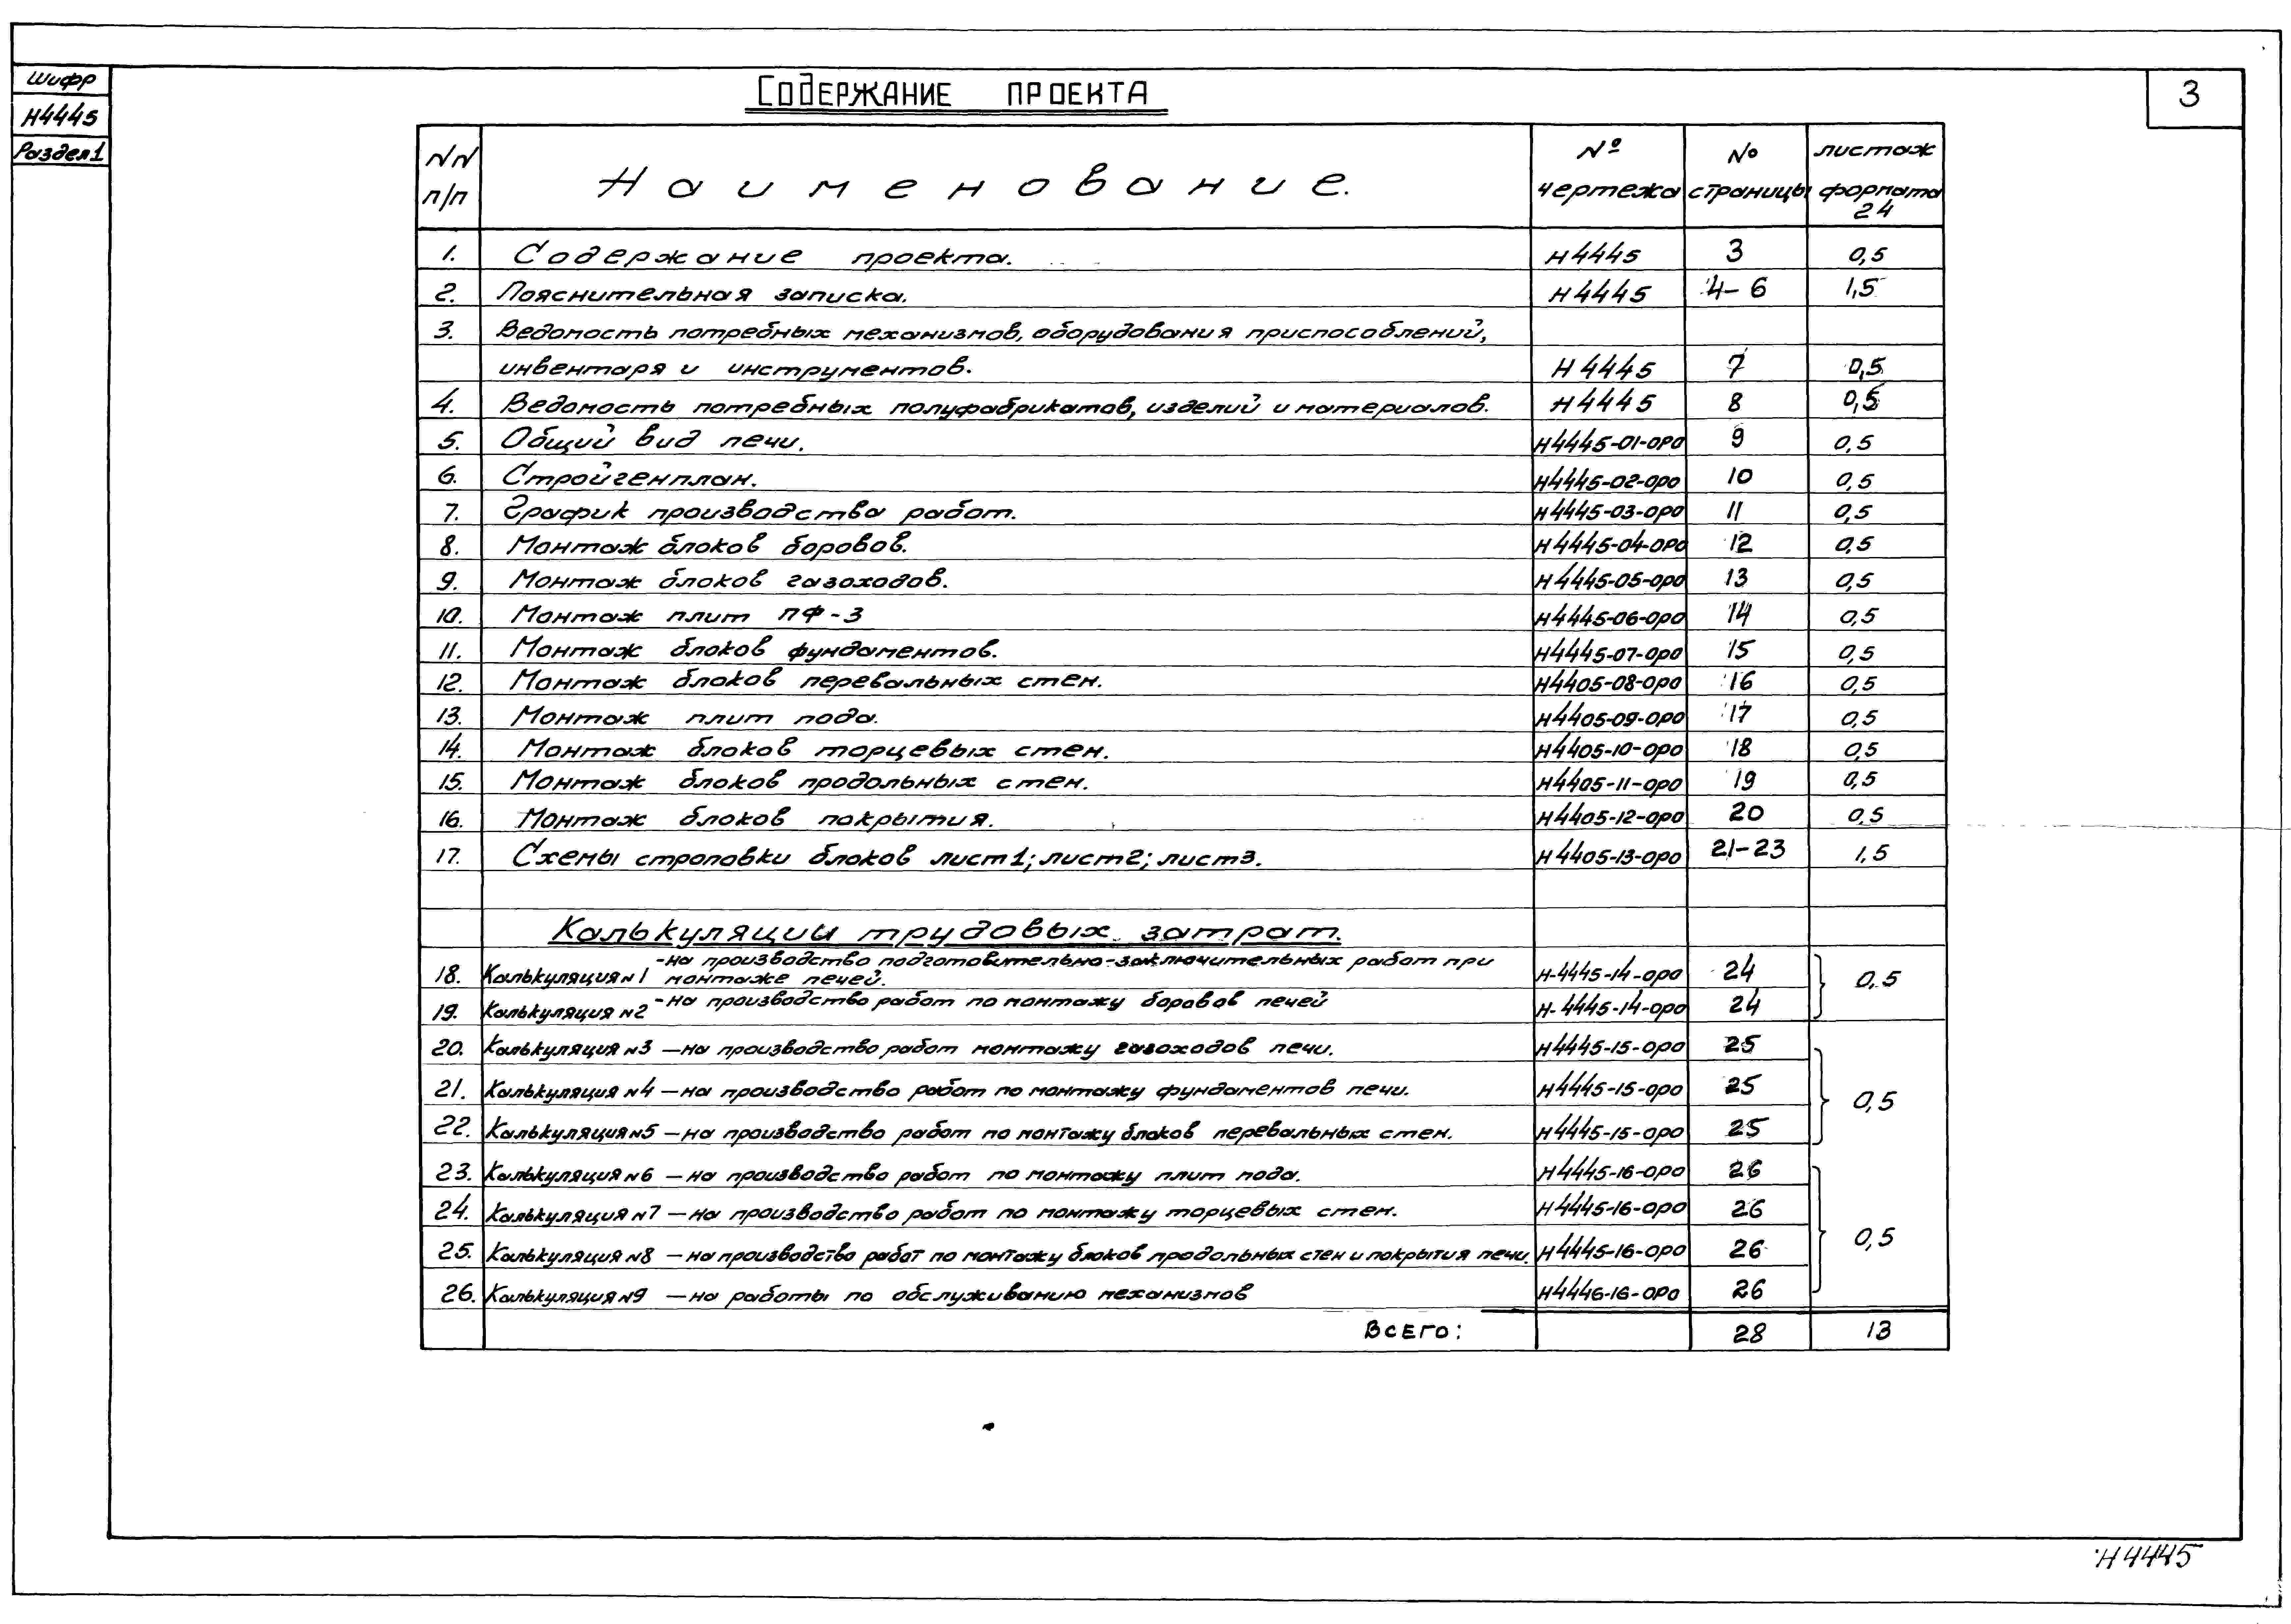 Шифр
Н4445
Раздел 1
3
СОДЕРЖАНИЕ ПРОЕКТА
NN п/п Наименование. № чертежа № страницы листаж формата 24
1. Содержание проекта. Н4445 3 0,5
2. Пояснительная записка. Н4445 4-6 1,5
3. Ведомость потребных механизмов, оборудования приспособлений,
инвентаря и инструментов. Н4445 7 0,5
4. Ведомость потребных полуфабрикатов, изделий и материалов. Н4445 8 0,5
5. Общий вид печи. Н4445-01-оро 9 0,5
6. Стройгенплан. Н4445-02-оро 10 0,5
7. График производства работ. Н4445-03-оро 11 0,5
8. Монтаж блоков боровов. Н4445-04-оро 12 0,5
9. Монтаж блоков газоходов. Н4445-05-оро 13 0,5
10. Монтаж плит ПФ-3 Н4445-06-оро 14 0,5
11. Монтаж блоков фундаментов. Н4445-07-оро 15 0,5
12. Монтаж блоков перевальных стен. Н4405-08-оро 16 0,5
13. Монтаж плит пода. Н4405-09-оро 17 0,5
14. Монтаж блоков торцевых стен. Н4405-10-оро 18 0,5
15. Монтаж блоков продольных стен. Н4405-11-оро 19 0,5
16. Монтаж блоков покрытия. Н4405-12-оро 20 0,5
17. Схемы строповки блоков лист 1; лист 2; лист 3. Н4405-13-оро 21-23 1,5
Калькуляции трудовых затрат.
18. Калькуляция N1 -на производство подготовительно-заключительных работ при
монтаже печей. Н-4445-14-оро 24 0,5
19. Калькуляция N2 -на производство работ по монтажу боровов печей Н-4445-14-оро 24
20. Калькуляция N3 -на производство работ монтажу газоходов печи. Н4445-15-оро 25
21. Калькуляция N4 -на производство работ по монтажу фундаментов печи. Н4445-15-оро 25 0,5
22. Калькуляция N5 -на производство работ по монтажу блоков перевальных стен. Н4445-15-оро 25
23. Калькуляция N6 -на производство работ по монтажу плит пода. Н4445-16-оро 26
24. Калькуляция N7 -на производство работ по монтажу торцевых стен. Н4445-16-оро 26
25. Калькуляция N8 -на производство работ по монтажу блоков продольных стен и покрытия печи. Н4445-16-оро 26 0,5
26. Калькуляция N9 -на работы по обслуживанию механизмов Н4446-16-оро 26
Всего: 28 13
Н4445